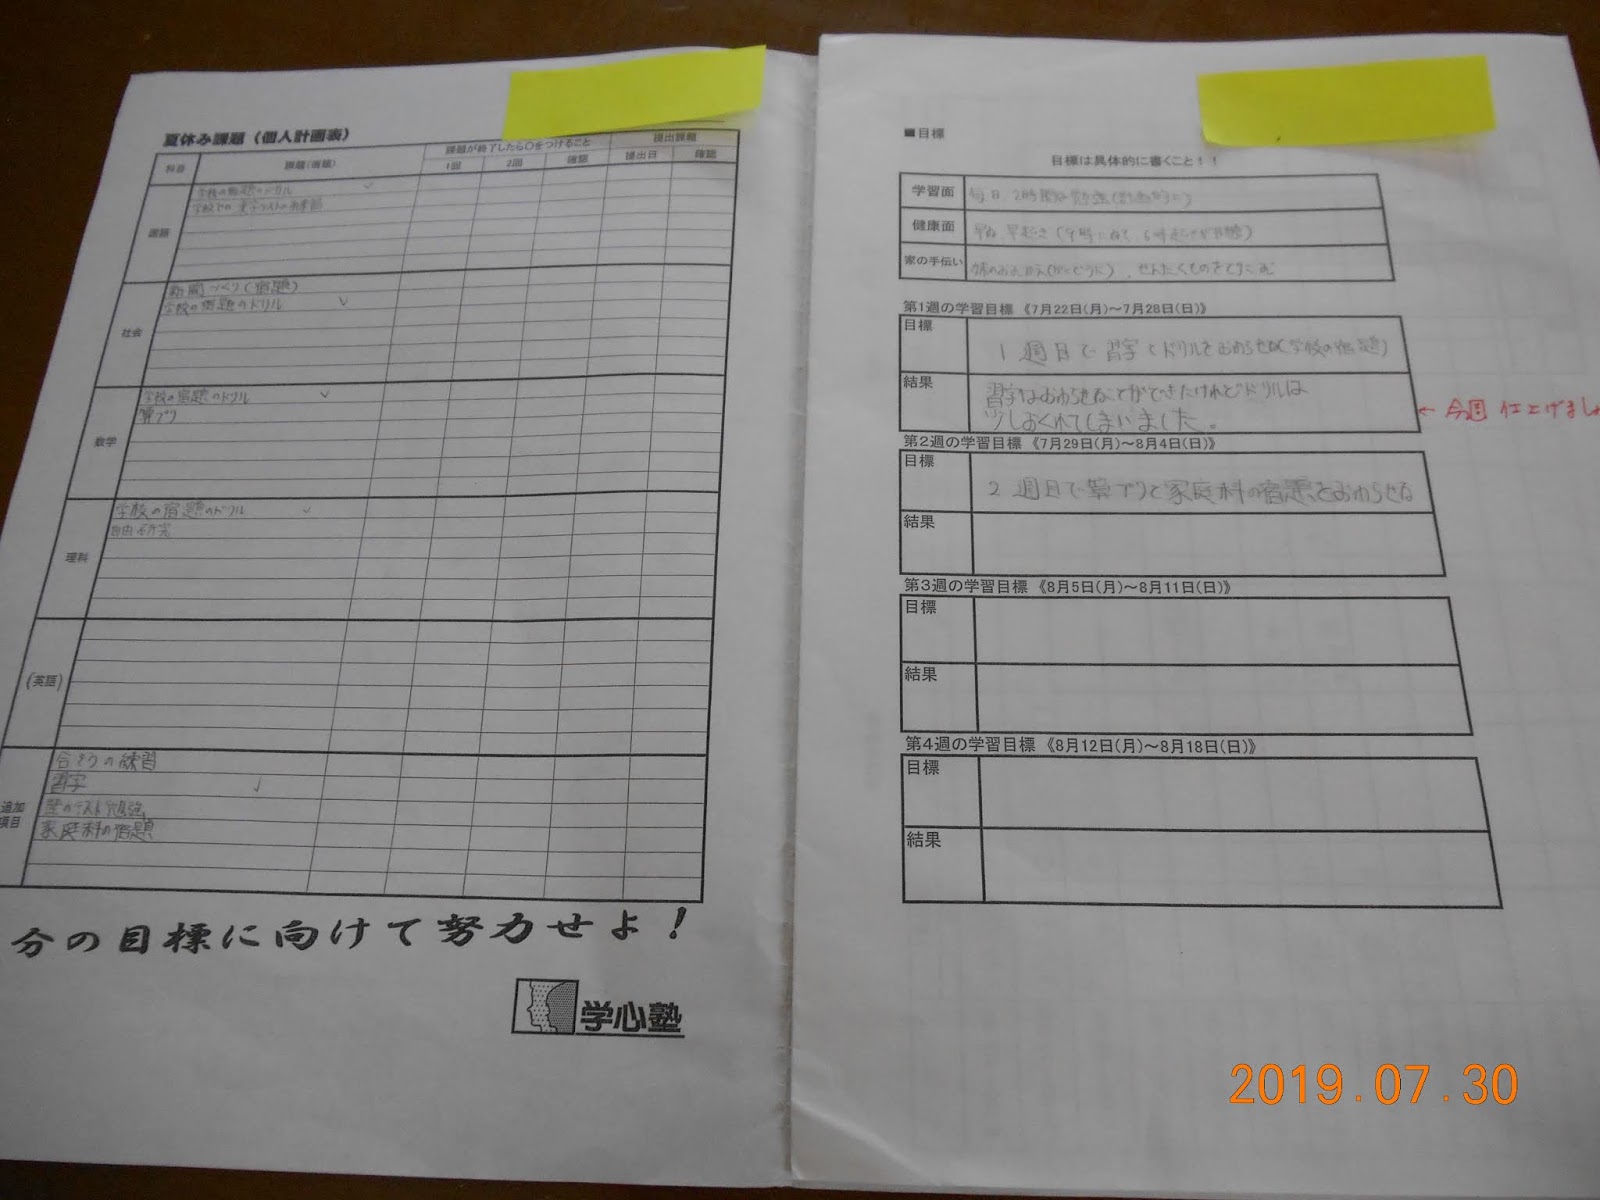 夏休み課題(個人計画表)
科目 課題(宿題) 課題が終了したら〇をつけること 提出課題
1回 2回 確認 提出日 確認
国語
学校の宿題のドリル
学校での漢字テストの
社会
新聞づくり(宿題)
学校の宿題のドリル
数学
学校の宿題のドリル
算プリ
理科
学校の宿題のドリル
自由研究
(英語)
追加項目
合そうの練習
習字
塾のテスト勉強
家庭科の宿題
分の目標に向けて努力せよ!
学心塾
■目標
目標は具体的に書くこと!!
学習面 毎日、2時間は勉強(計画的に)
健康面 早ね、早起き(9時にねて、6時起きが目標)
家の手伝い せんたくものをとりこむ
第1週の学習目標 《7月22日(月)~7月28日(日)》
目標 1週目で習字とドリルをおわらせる(学校の宿題)
結果 習字はおわらせることができたけれどドリルは
少しおくれてしまいました。
← 今週 仕上げまし
第2週の学習目標 《7月29日(月)~8月4日(日)》
目標 2週目で算プリと家庭科の宿題をおわらせる
結果
第3週の学習目標 《8月5日(月)~8月11日(日)》
目標
結果
第4週の学習目標 《8月12日(月)~8月18日(日)》
目標
結果
2019.07.30